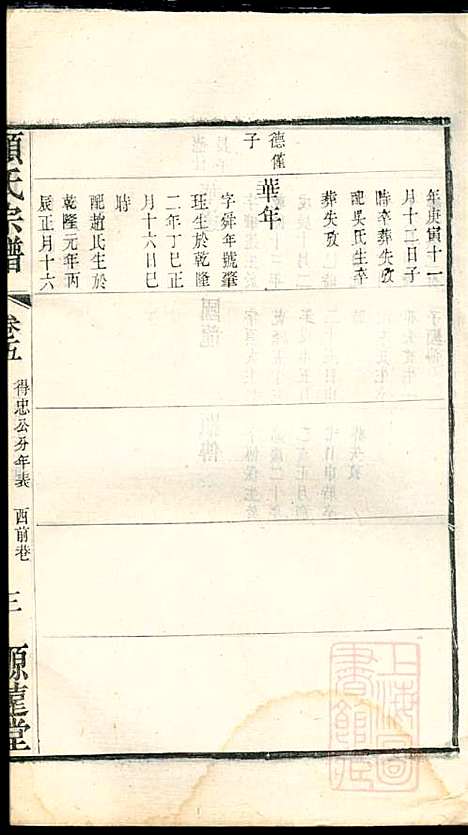 年庚寅十一
月十二日子
時卒葬失攷
配吳氏生卒
葬失攷
德僅
子
華年
字舜年號肇
珏生於乾隆
二年丁巳正
月十六日巳
時
配趙氏生於
乾隆元年丙
辰正月十六
顧氏宗譜
卷五
得忠公分年表 西前巷
三
源遠堂
上海圖
書館藏